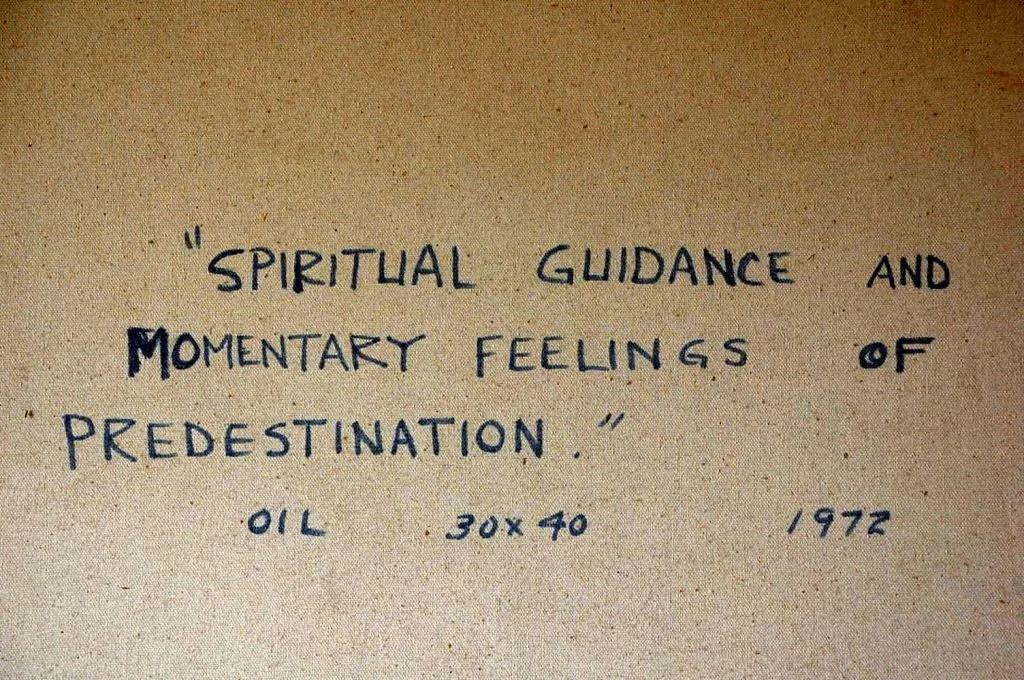 "SPIRITUAL GUIDANCE AND
MOMENTARY FEELINGS OF
PREDESTINATION."
OIL 30x40 1972